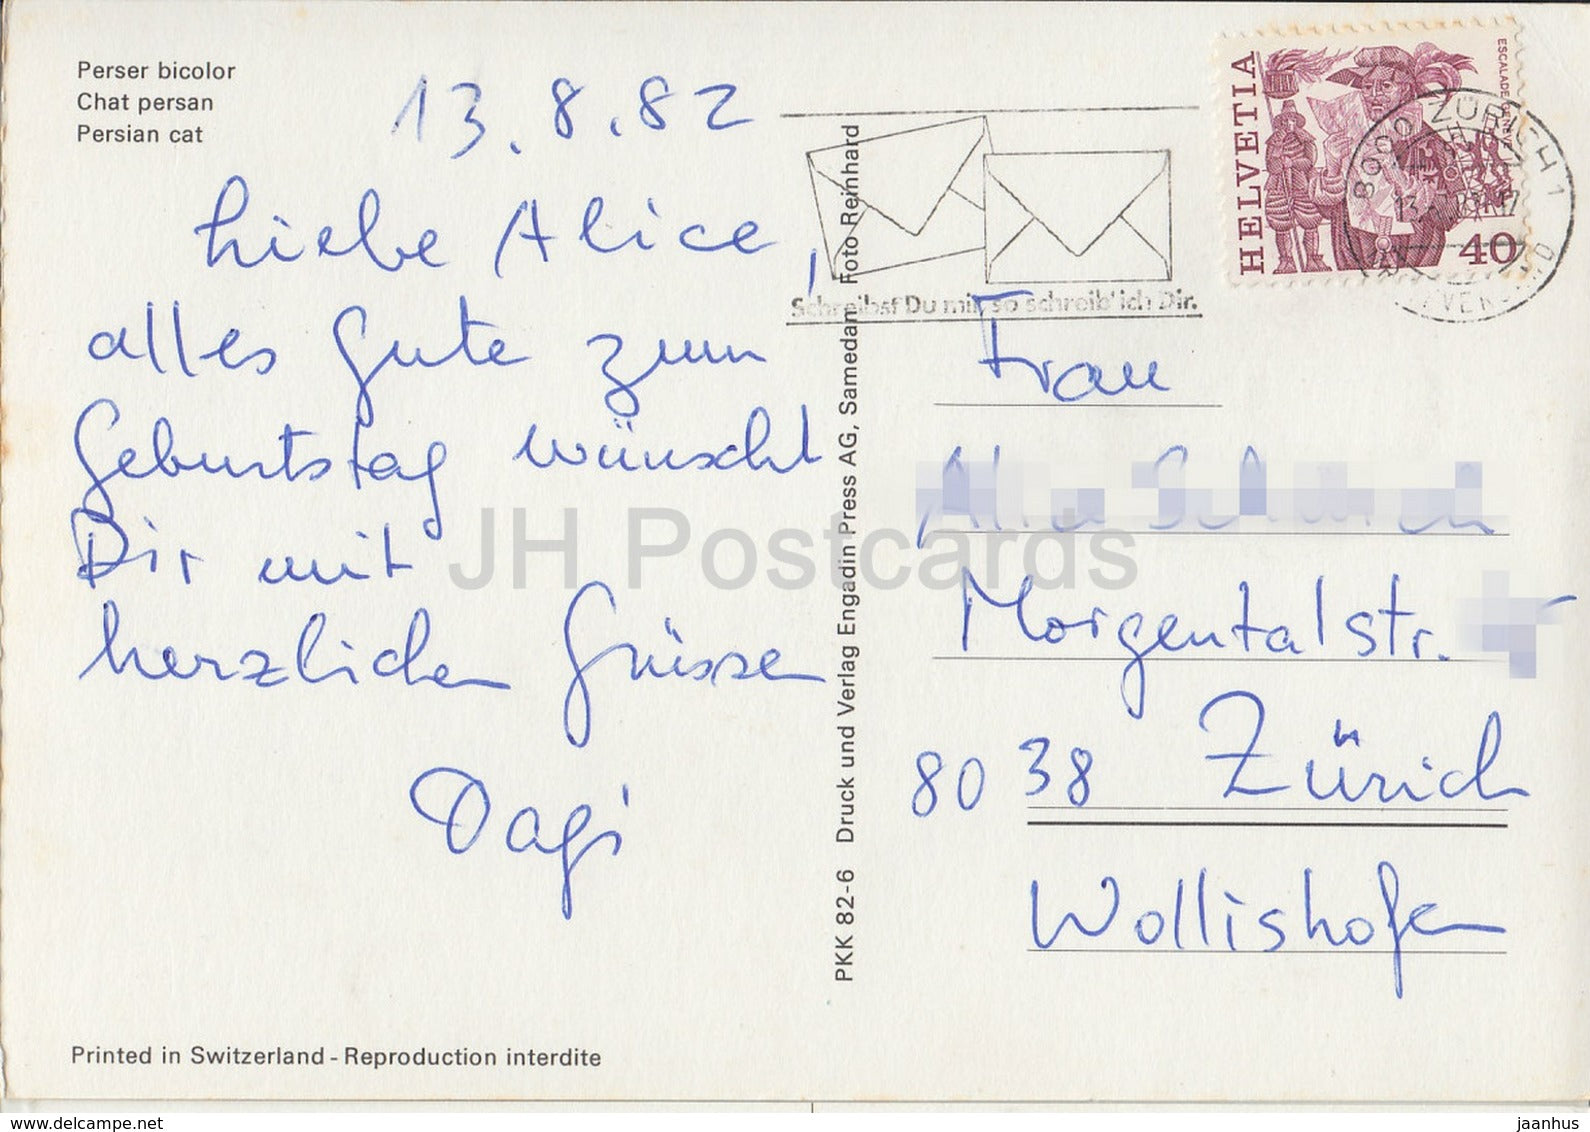 Perser bicolor
Chat persan
Persian cat
13.8.82
Liebe Alice,
alles Gute zum
Geburtstag wünscht
Dir mit
herzlichen Grüssen
Dagi
Printed in Switzerland - Reproduction interdite
PKK 82-6 Druck und Verlag Engadin Press AG, Samedan Foto Reinhard
Schreibst Du mir, so schreib' ich Dir.
HELVETIA
ESCALADE GENÈVE
40
8000 ZÜRICH 1
Frau
Morgentalstr.
8038 Zürich
Wollishofen
JH Postcards
www.delcampe.net
jaanhus